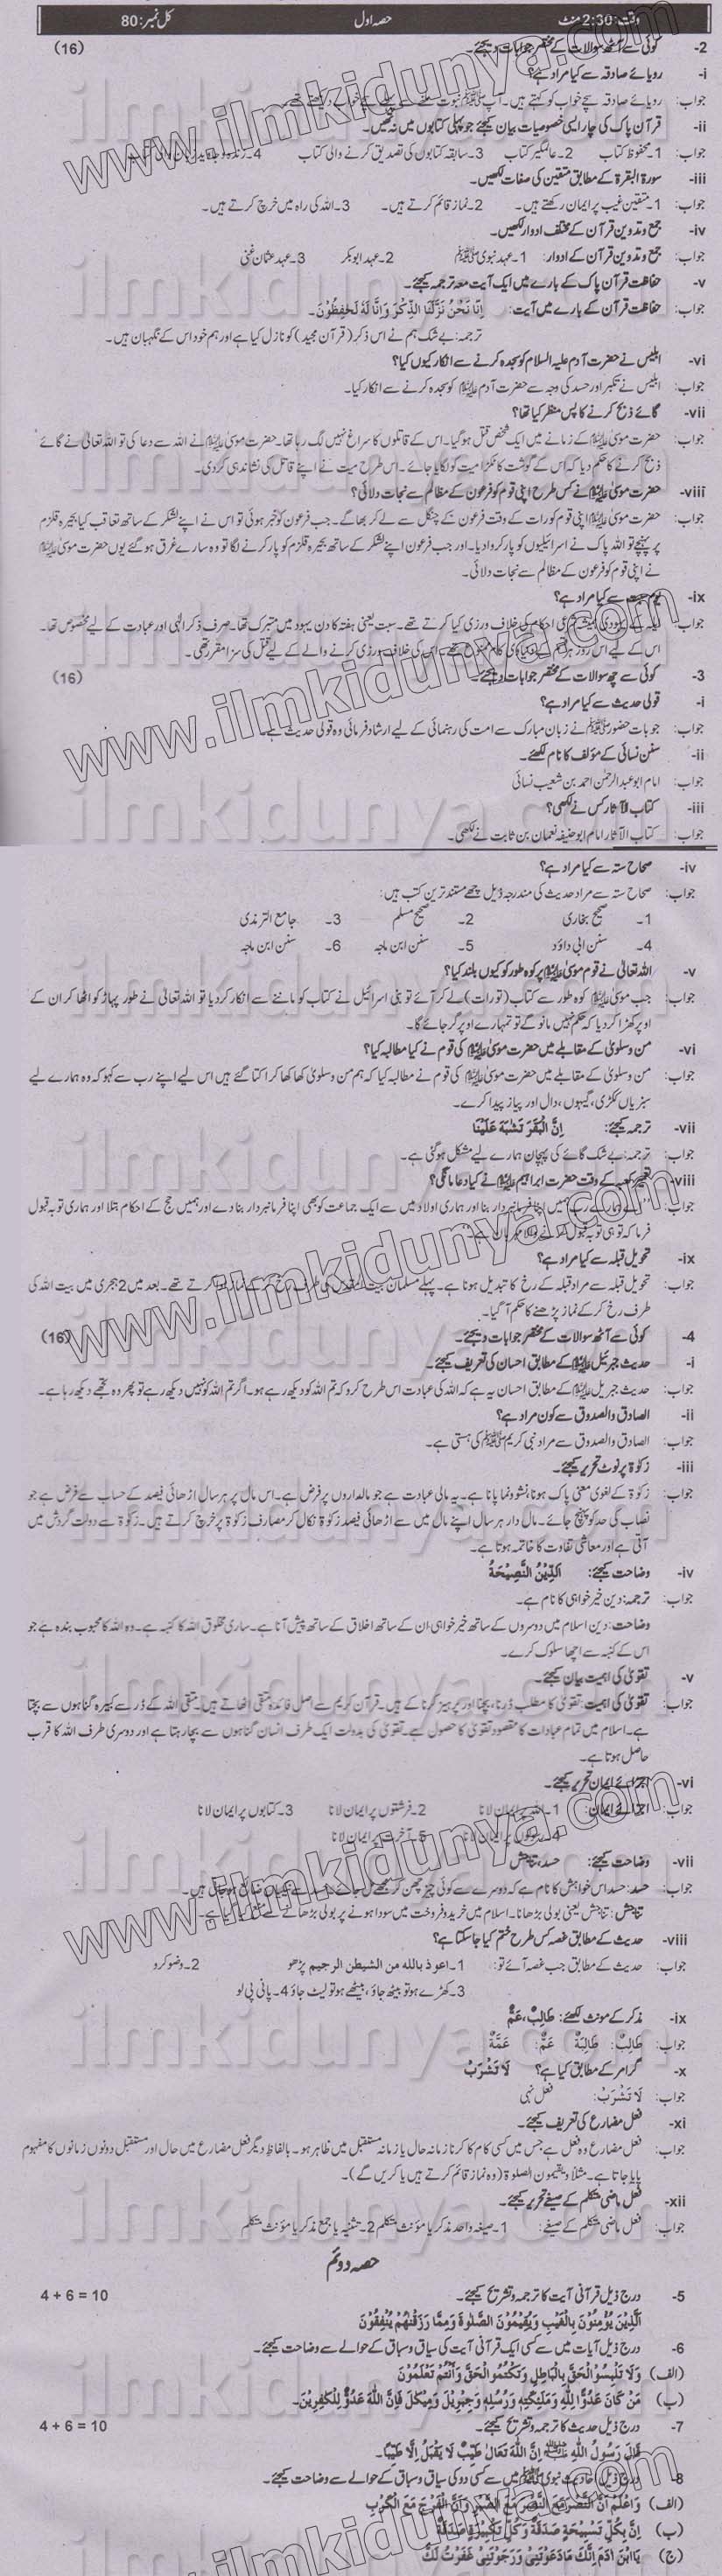 وقت: 2:30 منٹ حصہ اول کل نمبر: 80
2- کوئی سے آٹھ سوالات کے مختصر جوابات دیجئے۔ (16)
i- رویائے صادقہ سے کیا مراد ہے؟
جواب: رویائے صادقہ سچے خواب کو کہتے ہیں۔ آپ ﷺ نبوت ملنے سے پہلے سچے خواب دیکھتے تھے۔
ii- قرآن پاک کی چار ایسی خصوصیات بیان کیجئے جو پہلی کتابوں میں نہ تھیں۔
جواب: 1۔ محفوظ کتاب 2۔ عالمگیر کتاب 3۔ سابقہ کتابوں کی تصدیق کرنے والی کتاب 4۔ زندہ و جاوید زبان والی کتاب
iii- سورۃ البقرۃ کے مطابق متقین کی صفات لکھیں۔
جواب: 1۔ متقین غیب پر ایمان رکھتے ہیں۔ 2۔ نماز قائم کرتے ہیں۔ 3۔ اللہ کی راہ میں خرچ کرتے ہیں۔
iv- جمع و تدوین قرآن کے مختلف ادوار لکھیں۔
جواب: جمع و تدوین قرآن کے ادوار: 1۔ عہد نبوی ﷺ 2۔ عہد ابوبکر 3۔ عہد عثمان غنی
v- حفاظت قرآن پاک کے بارے میں ایک آیت معہ ترجمہ کیجئے۔
جواب: حفاظت قرآن کے بارے میں آیت: اِنَّا نَحْنُ نَزَّلْنَا الذِّكْرَ وَاِنَّا لَهٗ لَحٰفِظُوْنَ۔
ترجمہ: بے شک ہم نے اس ذکر (قرآن مجید) کو نازل کیا ہے اور ہم خود اس کے نگہبان ہیں۔
vi- ابلیس نے حضرت آدم علیہ السلام کو سجدہ کرنے سے انکار کیوں کیا؟
جواب: ابلیس نے تکبر اور حسد کی وجہ سے حضرت آدم علیہ السلام کو سجدہ کرنے سے انکار کیا۔
vii- گائے ذبح کرنے کا پس منظر کیا تھا؟
جواب: حضرت موسیٰ علیہ السلام کے زمانے میں ایک شخص قتل ہو گیا۔ اس کے قاتلوں کا سراغ نہیں لگ رہا تھا۔ حضرت موسیٰ علیہ السلام نے اللہ سے دعا کی تو اللہ تعالیٰ نے گائے
ذبح کرنے کا حکم دیا کہ اس کے گوشت کا ٹکڑا میت کو لگایا جائے۔ اس طرح میت نے اپنے قاتل کی نشاندہی کر دی۔
viii- حضرت موسیٰ علیہ السلام نے کس طرح اپنی قوم کو فرعون کے مظالم سے نجات دلائی؟
جواب: حضرت موسیٰ علیہ السلام اپنی قوم کو رات کے وقت فرعون کے چنگل سے لے کر بھاگے۔ جب فرعون کو خبر ہوئی تو اس نے اپنے لشکر کے ساتھ تعاقب کیا بحیرہ قلزم
پر پہنچے تو اللہ پاک نے اسرائیلیوں کو پار کروا دیا۔ اور جب فرعون اپنے لشکر کے ساتھ بحیرہ قلزم کو پار کرنے لگا تو وہ سارے غرق ہو گئے یوں حضرت موسیٰ علیہ السلام
نے اپنی قوم کو فرعون کے مظالم سے نجات دلائی۔
ix- یوم سبت سے کیا مراد ہے؟
جواب: کے یہودی احکام کی خلاف ورزی کیا کرتے تھے۔ سبت یعنی ہفتہ کا دن یہود میں متبرک تھا۔ صرف ذکر الٰہی اور عبادت کے لیے مخصوص تھا۔
اس کے لیے اس روز ہر قسم کے کام ممنوع تھے۔ اس کی خلاف ورزی کرنے والے کے لیے قتل کی سزا مقرر تھی۔
3- کوئی سے چھ سوالات کے مختصر جوابات دیجئے۔ (16)
i- قولی حدیث سے کیا مراد ہے؟
جواب: جو بات حضور ﷺ نے زبان مبارک سے امت کی رہنمائی کے لیے ارشاد فرمائی وہ قولی حدیث ہے۔
ii- سنن نسائی کے مؤلف کا نام لکھئے۔
جواب: امام ابو عبدالرحمٰن احمد بن شعیب نسائی
iii- کتاب الآثار کس نے لکھی؟
جواب: کتاب الآثار امام ابو حنیفہ نعمان بن ثابت نے لکھی۔
iv- صحاح ستہ سے کیا مراد ہے؟
جواب: صحاح ستہ سے مراد حدیث کی مندرجہ ذیل چھے مستند ترین کتب ہیں:
1۔ صحیح بخاری 2۔ صحیح مسلم 3۔ جامع الترمذی
4۔ سنن ابی داؤد 5۔ سنن ابن ماجہ 6۔ سنن ابن ماجہ
v- اللہ تعالیٰ نے قوم موسیٰ علیہ السلام پر کوہ طور کو کیوں بلند کیا؟
جواب: جب موسیٰ علیہ السلام کوہ طور سے کتاب (تورات) لے کر آئے تو بنی اسرائیل نے کتاب کو ماننے سے انکار کر دیا تو اللہ تعالیٰ نے طور پہاڑ کو اٹھا کر ان کے
اوپر کھڑا کر دیا کہ حکم نہیں مانو گے تو تمہارے اوپر گر جائے گا۔
vi- من و سلویٰ کے مقابلے میں حضرت موسیٰ علیہ السلام کی قوم نے کیا مطالبہ کیا؟
جواب: من و سلویٰ کے مقابلے میں حضرت موسیٰ علیہ السلام کی قوم نے مطالبہ کیا کہ ہم من و سلویٰ کھا کھا کر اکتا گئے ہیں اس لیے اپنے رب سے کہو کہ وہ ہمارے لیے
سبزیاں ککڑی، گیہوں، دال اور پیاز پیدا کرے۔
vii- ترجمہ کیجئے: اِنَّ الْبَقَرَ تَشٰبَهَ عَلَيْنَا
جواب: ترجمہ: بے شک گائے کی پہچان ہمارے لیے مشکل ہو گئی ہے۔
viii- تعمیر کعبہ کے وقت حضرت ابراہیم علیہ السلام نے کیا دعا مانگی؟
جواب: اے ہمارے رب ہمیں اپنا فرمانبردار بنا اور ہماری اولاد میں سے ایک جماعت کو بھی اپنا فرمانبردار بنا دے اور ہمیں حج کے احکام بتلا اور ہماری توبہ قبول
فرما کہ تو ہی توبہ قبول کرنے والا مہربان ہے۔
ix- تحویل قبلہ سے کیا مراد ہے؟
جواب: تحویل قبلہ سے مراد قبلہ کے رخ کا تبدیل ہونا ہے۔ پہلے مسلمان بیت المقدس کی طرف رخ کر کے نماز پڑھا کرتے تھے۔ بعد میں 2 ہجری میں بیت اللہ کی
طرف رخ کر کے نماز پڑھنے کا حکم آ گیا۔
4- کوئی سے آٹھ سوالات کے مختصر جوابات دیجئے۔ (16)
i- حدیث جبرئیل علیہ السلام کے مطابق احسان کی تعریف کیجئے۔
جواب: حدیث جبریل علیہ السلام کے مطابق احسان یہ ہے کہ اللہ کی عبادت اس طرح کرو کہ تم اللہ کو دیکھ رہے ہو۔ اگر تم اللہ کو نہیں دیکھ رہے تو پھر وہ تجھے دیکھ رہا ہے۔
ii- الصادق والصدوق سے کون مراد ہے؟
جواب: الصادق والصدوق سے مراد نبی کریم ﷺ کی ہستی ہے۔
iii- زکوٰۃ پر نوٹ تحریر کیجئے۔
جواب: زکوٰۃ کے لغوی معنی پاک ہونا، نشوونما پانا ہے۔ یہ مالی عبادت ہے جو مالداروں پر فرض ہے۔ اس مال پر ہر سال اڑھائی فیصد کے حساب سے فرض ہے جو
نصاب کی حد کو پہنچ جائے۔ مال دار ہر سال اپنے مال میں سے اڑھائی فیصد زکوٰۃ نکال کر مصارف زکوٰۃ پر خرچ کرتے ہیں۔ زکوٰۃ سے دولت گردش میں
آتی ہے اور معاشی تفاوت کا خاتمہ ہوتا ہے۔
iv- وضاحت کیجئے: اَلدِّيْنُ النَّصِيْحَةُ
جواب: ترجمہ: دین خیر خواہی کا نام ہے۔
وضاحت: دین اسلام میں دوسروں کے ساتھ خیر خواہی، ان کے ساتھ اخلاق کے ساتھ پیش آنا ہے۔ ساری مخلوق اللہ کا کنبہ ہے۔ وہ اللہ کا محبوب بندہ ہے جو
اس کے کنبہ سے اچھا سلوک کرے۔
v- تقویٰ کی اہمیت بیان کیجئے۔
جواب: تقویٰ کی اہمیت: تقویٰ کا مطلب ڈرنا، بچنا اور پرہیز کرنا کے ہیں۔ قرآن کریم سے اصل فائدہ متقی اٹھاتے ہیں۔ متقی اللہ کے ڈر سے کبیرہ گناہوں سے بچتا
ہے۔ اسلام میں تمام عبادات کا مقصود تقویٰ کا حصول ہے۔ تقویٰ کی بدولت ایک طرف انسان گناہوں سے بچا رہتا ہے اور دوسری طرف اللہ کا قرب
حاصل ہوتا ہے۔
vi- اجزائے ایمان تحریر کیجئے۔
جواب: اجزائے ایمان: 1۔ اللہ پر ایمان لانا 2۔ فرشتوں پر ایمان لانا 3۔ کتابوں پر ایمان لانا
4۔ رسولوں پر ایمان لانا 5۔ آخرت پر ایمان لانا
vii- وضاحت کیجئے: حسد، تناجش
جواب: حسد: حسد اس خواہش کا نام ہے کہ دوسرے سے کوئی چیز چھن کر مجھے مل جائے۔ نیکیاں ضائع ہو جاتی ہیں۔
تناجش: تناجش یعنی بولی بڑھانا۔ اسلام میں خرید و فروخت میں سودا ہونے پر بولی بڑھانے سے منع کیا گیا ہے۔
viii- حدیث کے مطابق غصہ کس طرح ختم کیا جا سکتا ہے؟
جواب: حدیث کے مطابق جب غصہ آئے تو: 1۔ اعوذ بالله من الشيطن الرجيم پڑھو 2۔ وضو کرو
3۔ کھڑے ہو تو بیٹھ جاؤ، بیٹھے ہو تو لیٹ جاؤ 4۔ پانی پی لو
ix- مذکر کے مونث لکھئے: طَالِبٌ، عَمٌّ
جواب: طَالِبٌ: طَالِبَةٌ عَمٌّ: عَمَّةٌ
x- گرامر کے مطابق کیا ہے؟ لَا تَشْرَبْ
جواب: لَا تَشْرَبْ: فعل نہی
xi- فعل مضارع کی تعریف کیجئے۔
جواب: فعل مضارع وہ فعل ہے جس میں کسی کام کا کرنا زمانہ حال یا زمانہ مستقبل میں ظاہر ہو۔ بالفاظ دیگر فعل مضارع میں حال اور مستقبل دونوں زمانوں کا مفہوم
پایا جاتا ہے۔ مثلاً ویقیمون الصلوۃ (وہ نماز قائم کرتے ہیں یا کریں گے)۔
xii- فعل ماضی متکلم کے صیغے تحریر کیجئے۔
جواب: فعل ماضی متکلم کے صیغے: 1۔ صیغہ واحد مذکر یا مؤنث متکلم 2۔ تثنیہ یا جمع مذکر یا مؤنث متکلم
حصہ دوئم
5- درج ذیل قرآنی آیت کا ترجمہ و تشریح کیجئے۔ 4 + 6 = 10
الَّذِيْنَ يُؤْمِنُوْنَ بِالْغَيْبِ وَيُقِيْمُوْنَ الصَّلٰوةَ وَمِمَّا رَزَقْنٰهُمْ يُنْفِقُوْنَ
6- درج ذیل آیات میں سے کسی ایک قرآنی آیت کی سیاق و سباق کے حوالے سے وضاحت کیجئے۔
(الف) وَلَا تَلْبِسُوا الْحَقَّ بِالْبَاطِلِ وَتَكْتُمُوا الْحَقَّ وَاَنْتُمْ تَعْلَمُوْنَ
(ب) مَنْ كَانَ عَدُوًّا لِّلّٰهِ وَمَلٰٓئِكَتِهٖ وَرُسُلِهٖ وَجِبْرِيْلَ وَمِيْكٰلَ فَاِنَّ اللّٰهَ عَدُوٌّ لِّلْكٰفِرِيْنَ۔
7- درج ذیل حدیث کا ترجمہ و تشریح کیجئے۔ 4 + 6 = 10
قَالَ رَسُوْلُ اللّٰهِ ﷺ اِنَّ اللّٰهَ تَعَالٰى طَيِّبٌ لَا يَقْبَلُ اِلَّا طَيِّبًا۔
8- درج ذیل احادیث نبوی ﷺ میں سے کسی دو کی سیاق و سباق کے حوالے سے وضاحت کیجئے۔
(الف) وَاعْلَمْ اَنَّ النَّصْرَ مَعَ الصَّبْرِ وَاَنَّ الْفَرَجَ مَعَ الْكَرْبِ
(ب) اِنَّ بِكُلِّ تَسْبِيْحَةٍ صَدَقَةً وَكُلِّ تَكْبِيْرَةٍ صَدَقَةٌ
(ج) يَا ابْنَ اٰدَمَ اِنَّكَ مَا دَعَوْتَنِيْ وَرَجَوْتَنِيْ غَفَرْتُ لَكَ
www.ilmkidunya.com
ilmkidunya.com